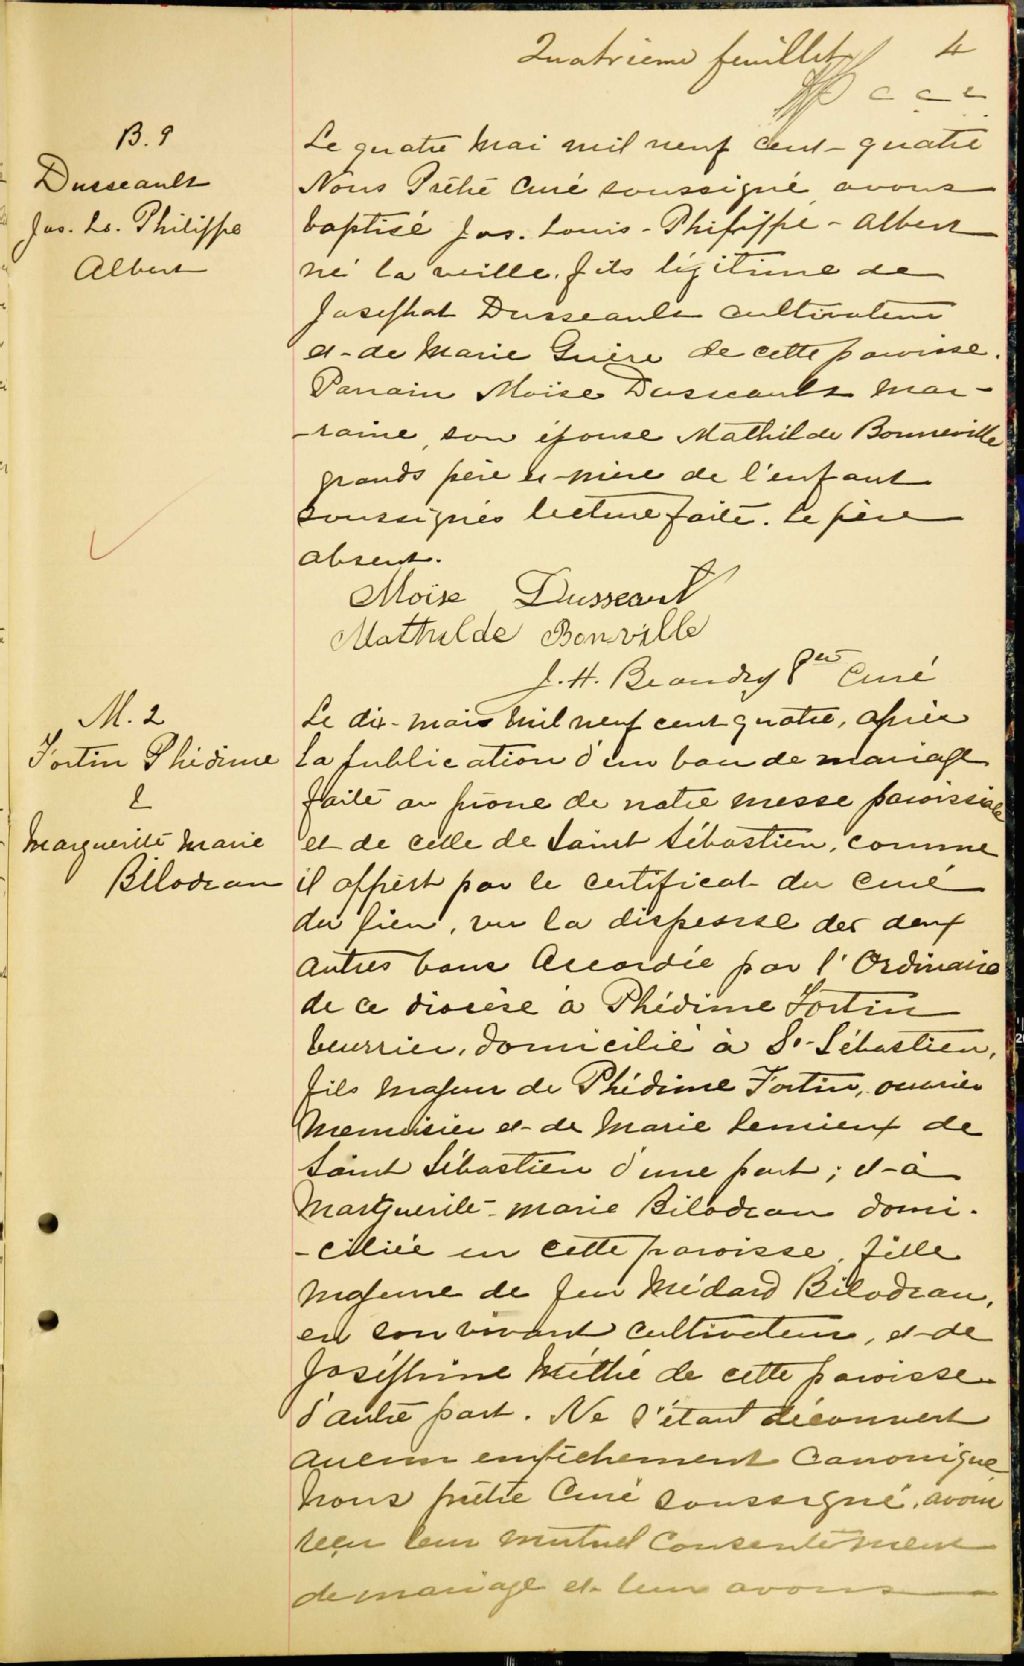 Quatrième feuillet 4
c c c
B. 9
Dusseault
Jos. Ls. Philippe
Albert
Le quatre Mai mil neuf cent-quatre
Nous Prêtre Curé soussigné, avons
baptisé Jos. Louis-Philippe-Albert
né la veille, fils légitime de
Josephat Dusseault cultivateur
et de Marie de cette paroisse.
Parrain Moïse Dusseault mar-
-raine, son épouse Mathilde Bonneville
grands père et mère de l'enfant
soussignés lecture faite. Le père
absent.
Moïse Dusseault
Mathilde Bonville
J. H. Beaudry Ptre Curé
M. 2
Fortin Phédime
&
Marguerite Marie
Bilodeau
Le dix-mais mil neuf cent quatre, après
la publication d'un ban de mariage
faite au prône de notre messe paroissiale
et de celle de Saint Sébastien, comme
il appert par le certificat du curé
du lieu, vu la dispense des deux
autres bans accordée par l'Ordinaire
de ce diocèse à Phédime Fortin
beurrier, domicilié à St-Sébastien,
fils majeur de Phédime Fortin, ouvrier
menuisier et de Marie Lemieux de
Saint Sébastien d'une part; et à
Marguerite-marie Bilodeau domi-
-ciliée en cette paroisse, fille
majeure de feu Médard Bilodeau,
en son vivant cultivateur, et de
Joséphine Méthé de cette paroisse
d'autre part. Ne s'étant découvert
aucun empêchement Canonique
Nous prêtre Curé soussigné, avons
reçu leur mutuel consentement
de mariage et leur avons